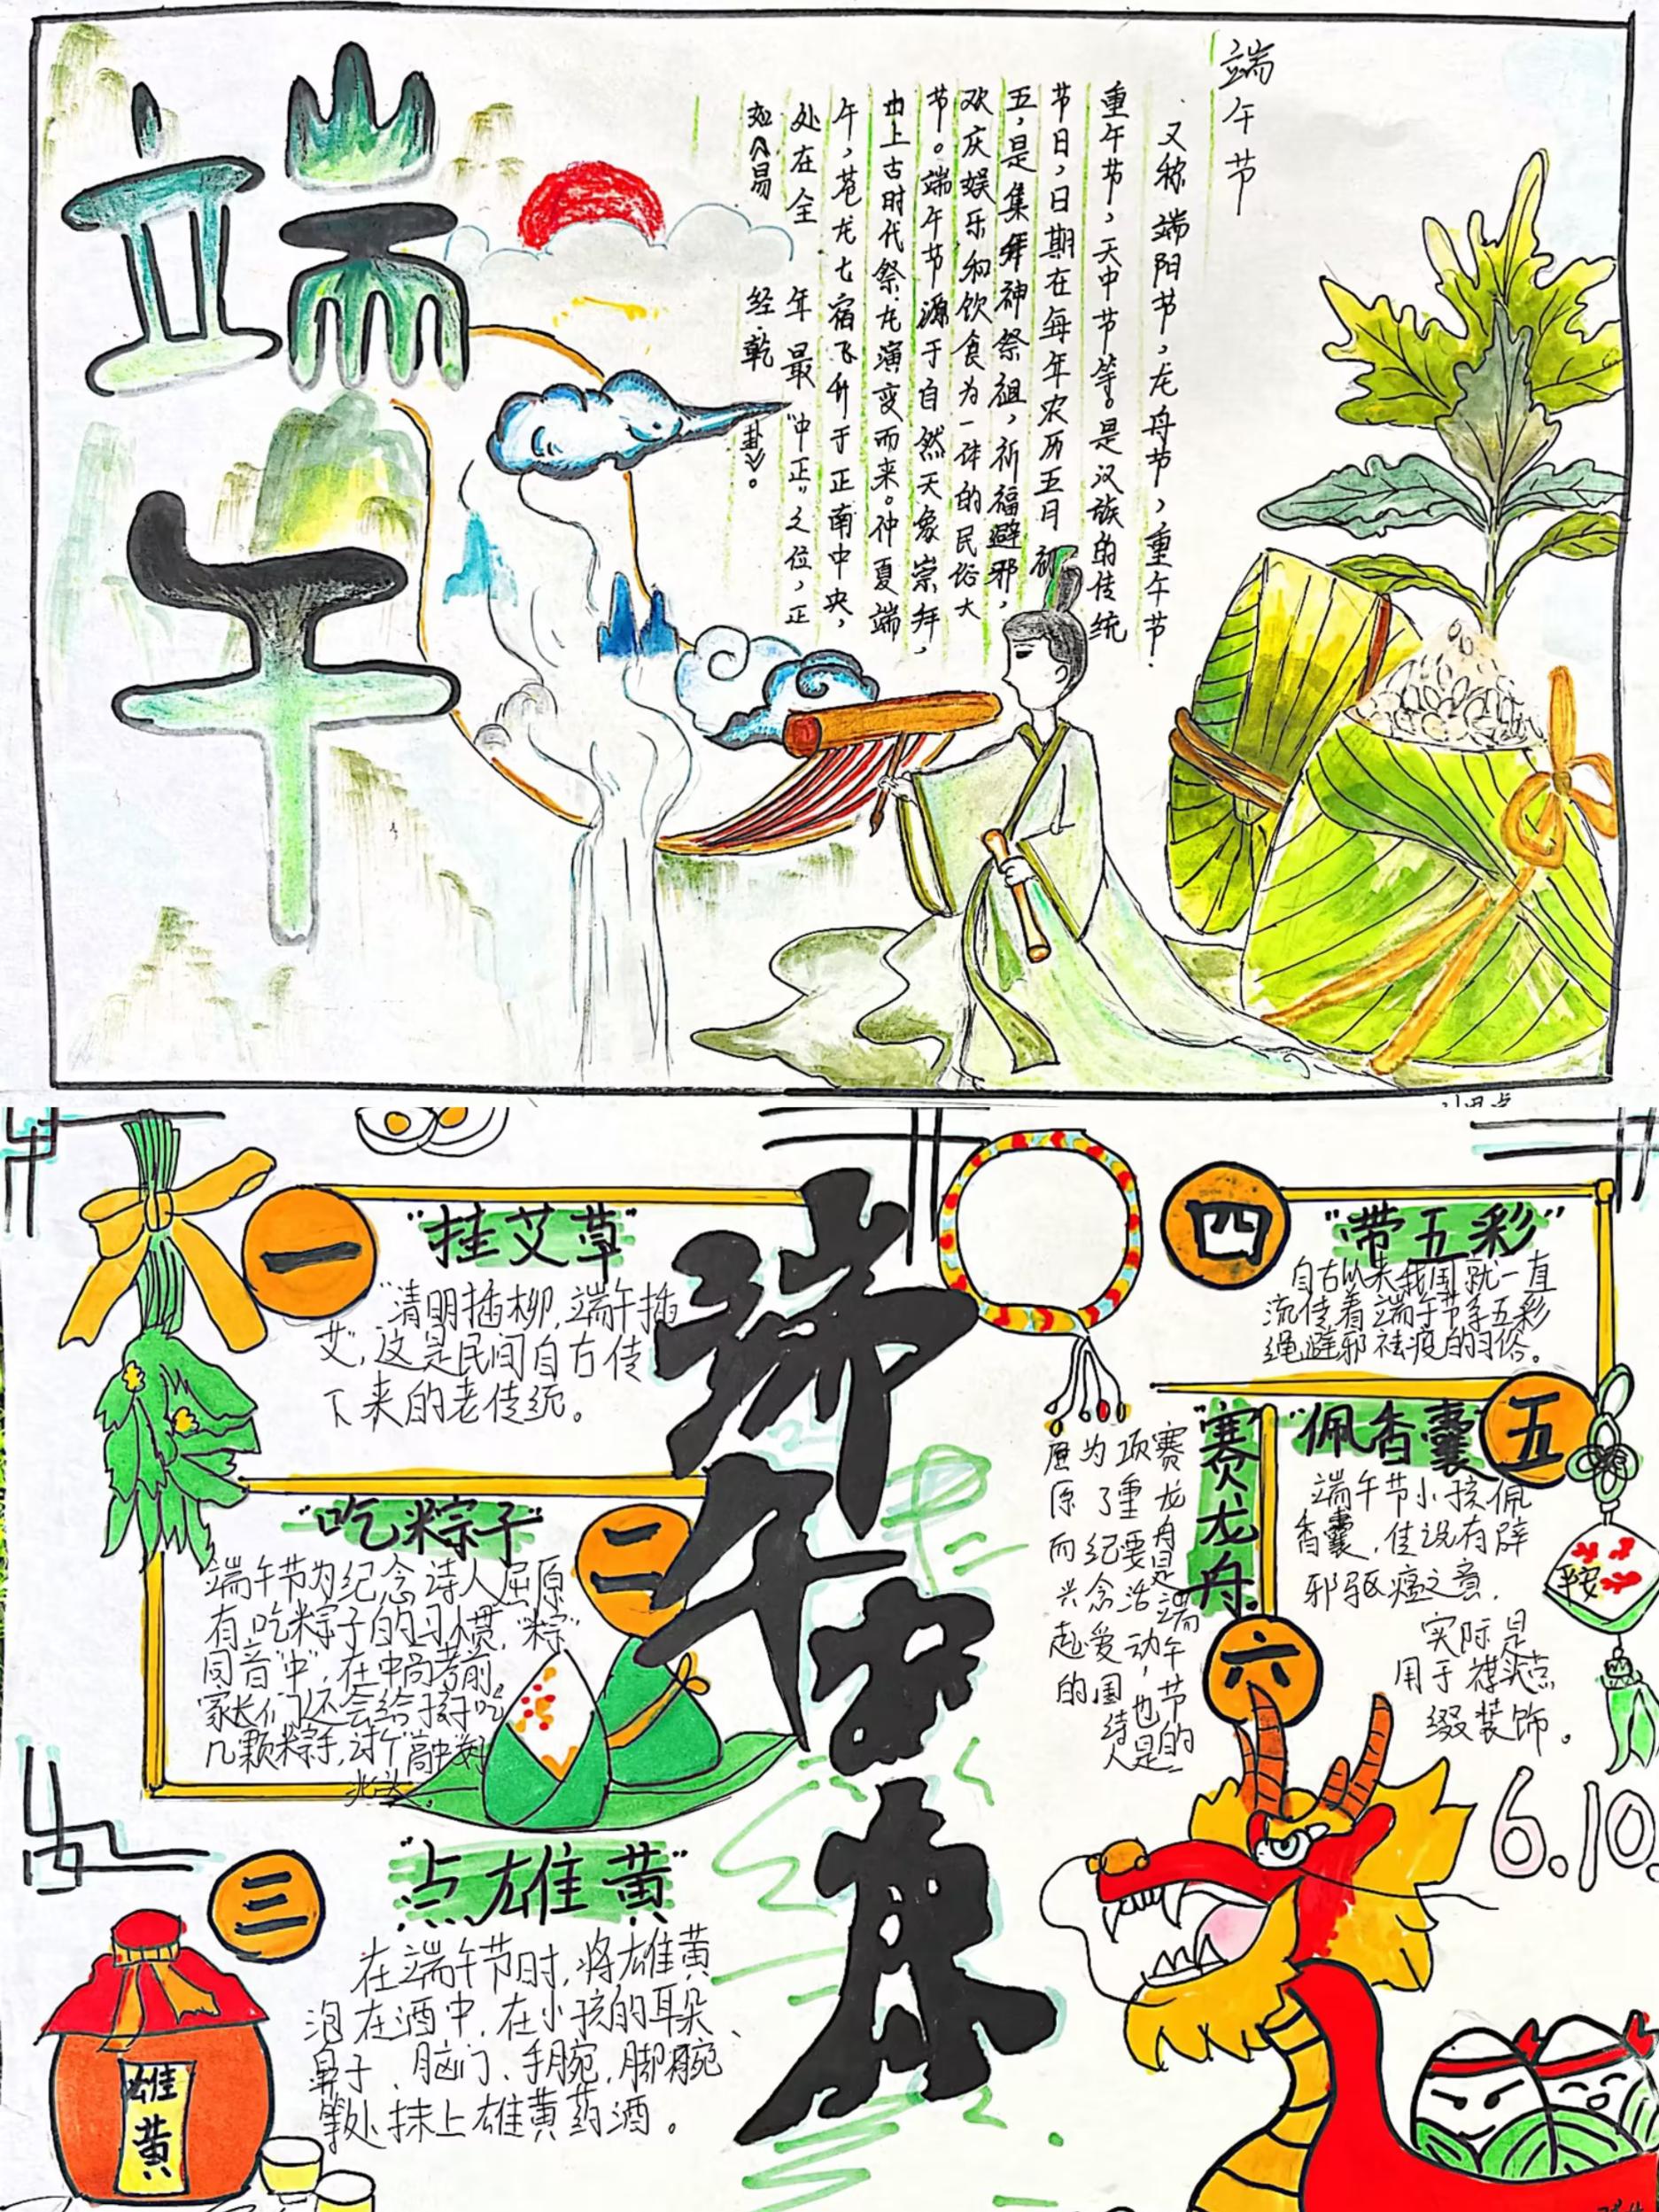 端午
端午节
又称端阳节，龙舟节，重午节.
重午节，天中节等。是汉族的传统
节日，日期在每年农历五月初
五，是集拜神祭祖，祈福避邪，
欢庆娱乐和饮食为一体的民俗大
节。端午节源于自然天象崇拜，
由上古时代祭龙演变而来。仲夏端
午，苍龙七宿飞升于正南中央，
处在全年最“中正”之位，正
如《易经·乾卦》。
一
“挂艾草”
“清明插柳，端午插
艾”，这是民间自古传
下来的老传统。
二
“吃粽子”
端午节为纪念诗人屈原
有吃粽子的习惯，“粽”
同音“中”，在中尚考前，
家长们还会给孩子吃
几颗粽子，讨个“高中”
三
“点雄黄”
在端午节时，将雄黄
泡在酒中，在小孩的耳朵、
鼻子、脑门、手腕，脚腕
等处抹上雄黄药酒。
雄黄
端午安康
四
“带五彩”
自古以来我国就一直
流传着端午节系五彩
绳避邪祛疫的习俗。
五
“佩香囊”
端午节小孩佩
香囊，传说有辟
邪驱瘟之意，
实际是
用于襟头点
缀装饰。
六
“赛龙舟”
赛龙舟是端午节的
项重要活动，也是
为了纪念爱国诗人
屈原而兴起的
6.10.